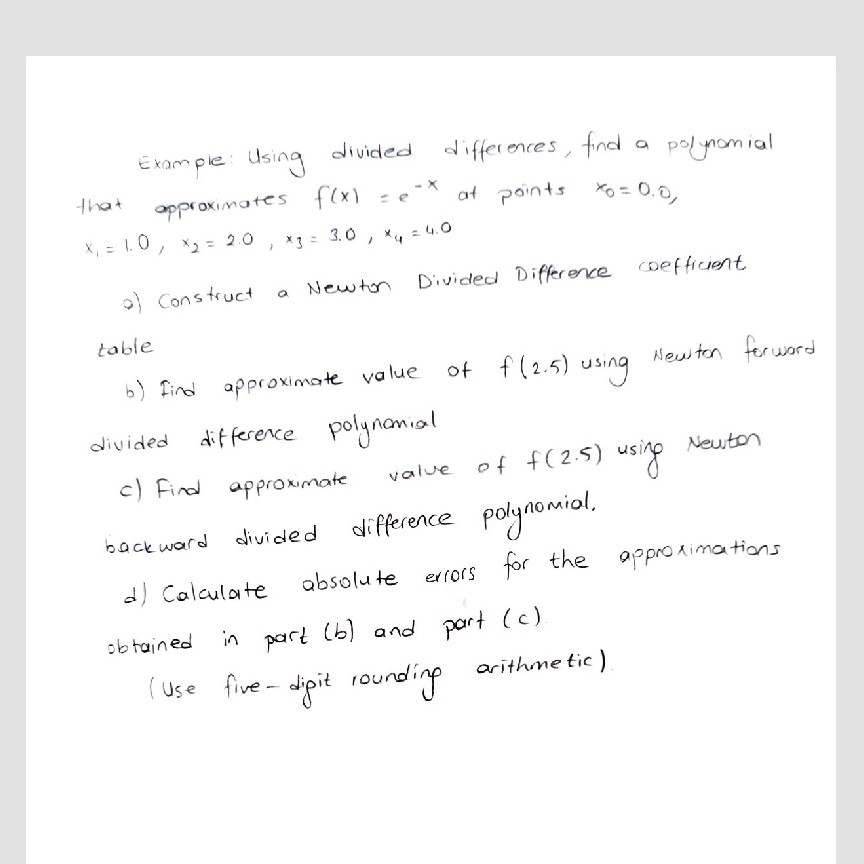 Example: Using divided differences, find a polynomial
that approximates f(x) = e^-x at points x₀ = 0.0,
x₁ = 1.0, x₂ = 2.0, x₃ = 3.0, x₄ = 4.0
a) Construct a Newton Divided Difference coefficient
table
b) find approximate value of f(2.5) using Newton forward
divided difference polynomial
c) Find approximate value of f(2.5) using Newton
backward divided difference polynomial.
d) Calculate absolute errors for the approximations
obtained in part (b) and part (c)
(Use five-digit rounding arithmetic)